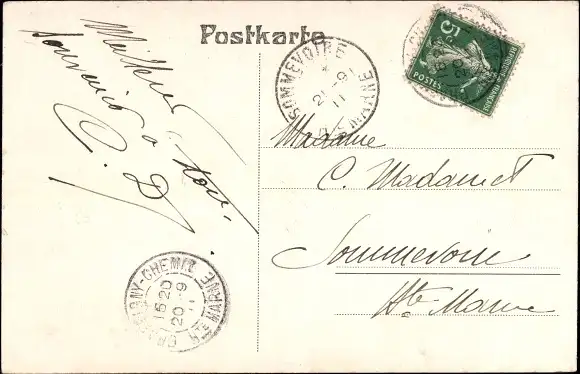 Postkarte
Meilleur
souvenir à
tous.
C. D.
SOMMEVOIRE
*
21 -9
11
HTE MARNE
5
POSTES
Madame
C. Madamet
Sommevoire
Hte Marne
GNY-CHEMIN
15 20
20 -9
11
HTE MARNE